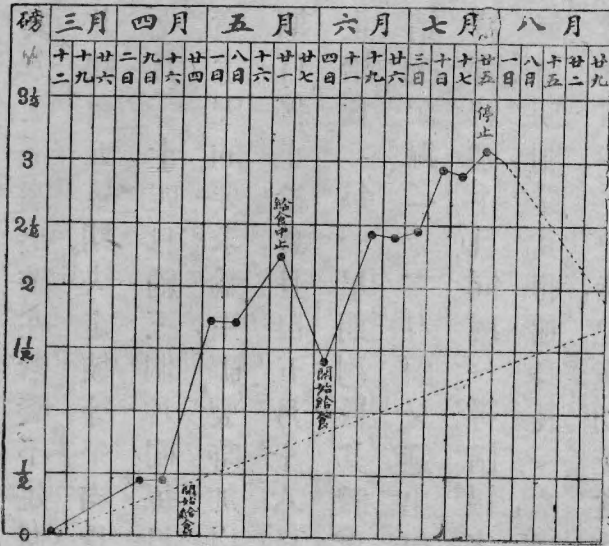 磅 三月 四月 五月 六月 七月 八月
十二 十九 廿六 二日 九日 十六 廿四 一日 八日 十六 廿一 廿七 四日 十一 十九 廿六 三日 十日 十七 廿五 一日 八日 十五 廿二 廿九
3½
停止
3
2½
給食中止
2
1½
開始給食
½
開始給食
0